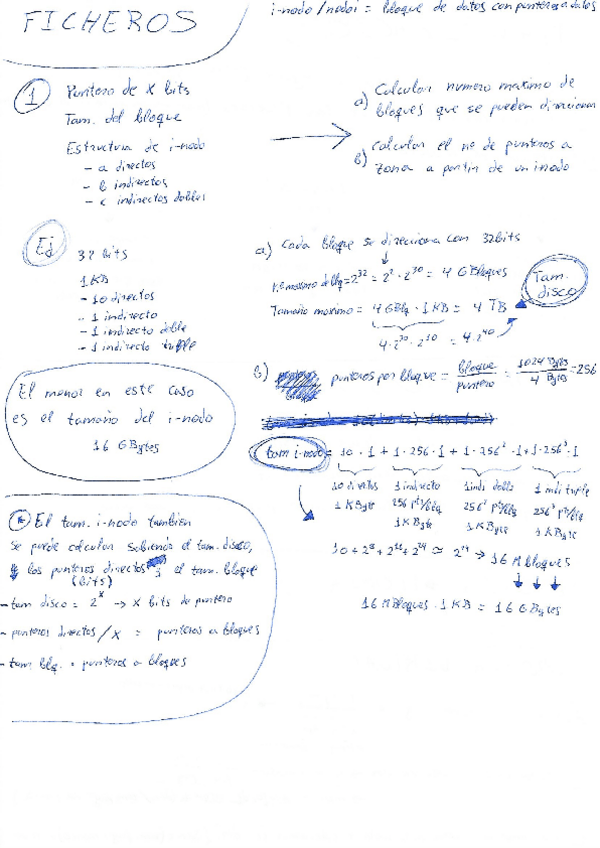 FICHEROS
i-nodo/nodoi = bloque de datos con punteros a datos
1
Puntero de X bits
Tam. del bloque
Estructura de i-nodo
- a directos
- b indirectos
- c indirectos dobles
a) Calcular numero maximo de
bloques que se pueden direccionar
b) Calcular el nº de punteros a
zona a partir de un inodo
Ej
32 bits
1 KB
- 10 directos
- 1 indirecto
- 1 indirecto doble
- 1 indirecto triple
a) Cada bloque se direcciona con 32 bits
nº maximo de blq = 2^32 = 2^2 · 2^30 = 4 GBloques
Tamaño maximo = 4 GBlq · 1 KB = 4 TB
4·2^30 · 2^10 = 4·2^40
Tam.
disco
El menor en este caso
es el tamaño del i-nodo
16 GBytes
b) punteros por bloque = bloque / puntero = 1024 Bytes / 4 Bytes = 256
tam i-nodo = 10 · 1 + 1 · 256 · 1 + 1 · 256² · 1 + 1 · 256³ · 1
10 directos 1 indirecto 1 indi doble 1 indi triple
1 KByte 256 ptr/blq 256² ptr/blq 256³ ptr/blq
1 KByte 1 KByte 1 KByte
10 + 2^8 + 2^16 + 2^24 ≃ 2^24 → 16 M bloques
16 MBloques · 1 KB = 16 GBytes
* El tam. i-nodo tambien
se puede calcular sabiendo el tam. disco,
los punteros directos y el tam. bloque
(bits)
- tam disco = 2^x → x bits de puntero
- punteros directos / x = punteros a bloques
- tam blq. · punteros a bloques